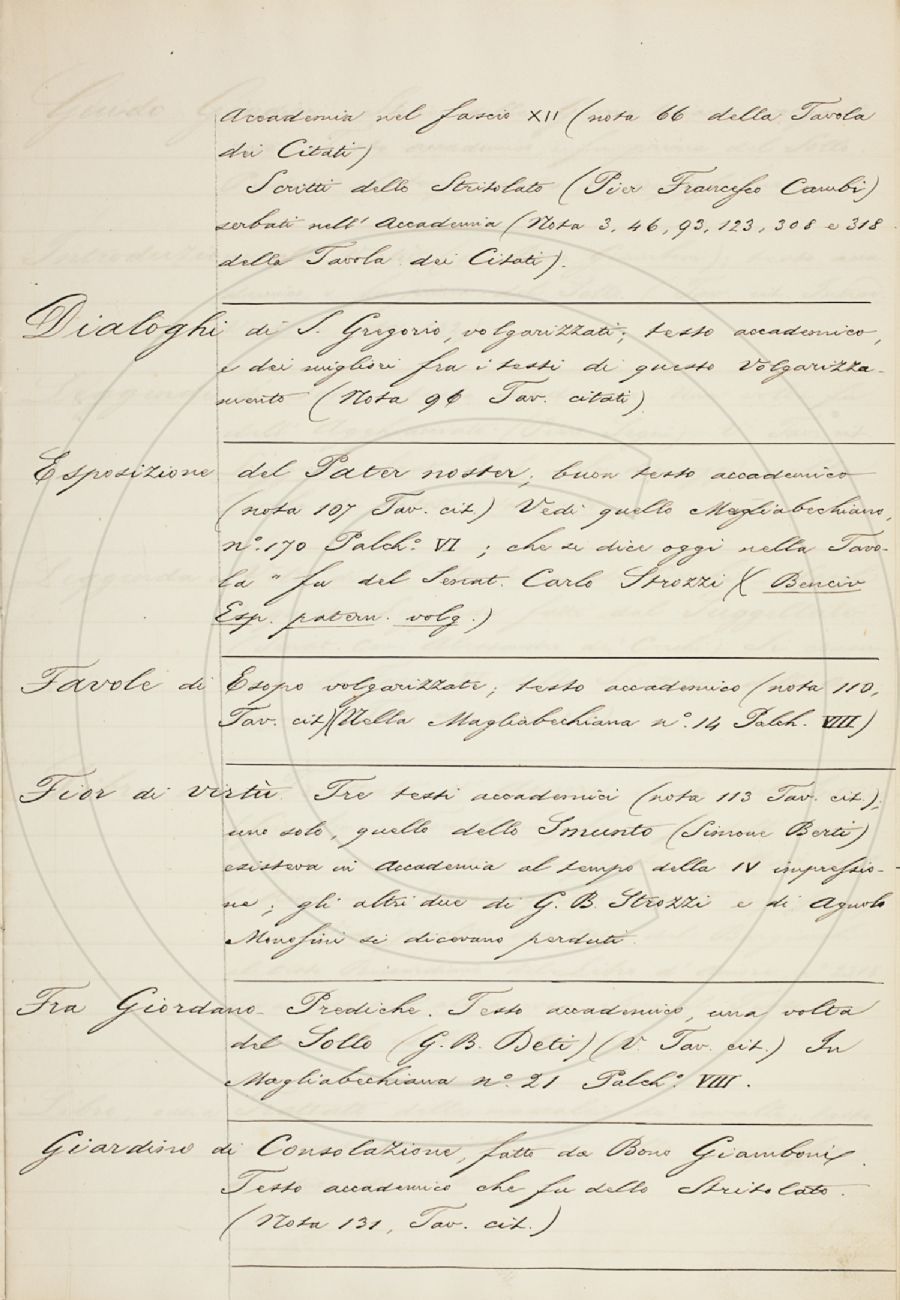 Accademia nel fascio XII (nota 66 della Tavola
dei Citati)
Scritti dello Stritolato (Pier Francesco Cambi)
serbati nell' Accademia (Nota 3, 46, 93, 123, 308 e 318
della Tavola dei Citati).
Dialoghi di S. Gregorio, volgarizzati; testo accademico,
e dei migliori fra i testi di questo Volgarizza-
mento (Nota 96 Tav. citati)
Esposizione del Pater noster; buon testo accademico
(nota 107 Tav. cit.) Vedi quello Magliabechiano,
n.° 170 Palch.° VI ; che si dice oggi nella Tavo-
la " fu del Senat. Carlo Strozzi )( Benciv
Esp. patern. volg.)
Favole di Esopo volgarizzate; testo accademico (nota 110,
Tav. cit)(Nella Magliabechiana n.° 14 Palch. VIIII)
Fior di virtù. Tre testi accademici (nota 113 Tav. cit.);
uno solo, quello dello Smunto (Simone Berti)
esisteva in Accademia al tempo della IV impressio-
ne; gli altri due di G. B. Strozzi e di Agnolo
Monosini si dicevano perduti.
Fra Giordano - Prediche. Testo accademico, una volta
del Sollo (G. B. Deti) (V. Tav. cit.) In
Magliabechiana n.° 21 Palch.° VIII.
Giardino di Consolazione, fatto da Bono Giamboni.
Testo accademico che fu dello Stritolato.
(Nota 131, Tav. cit.)